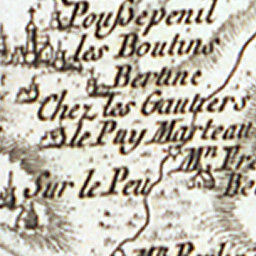 Poussepenil
les Boutins
Bertine
Chez les Gautiers
le Puy Marteau
Mⁿ Fr
Sur le Peu
Be